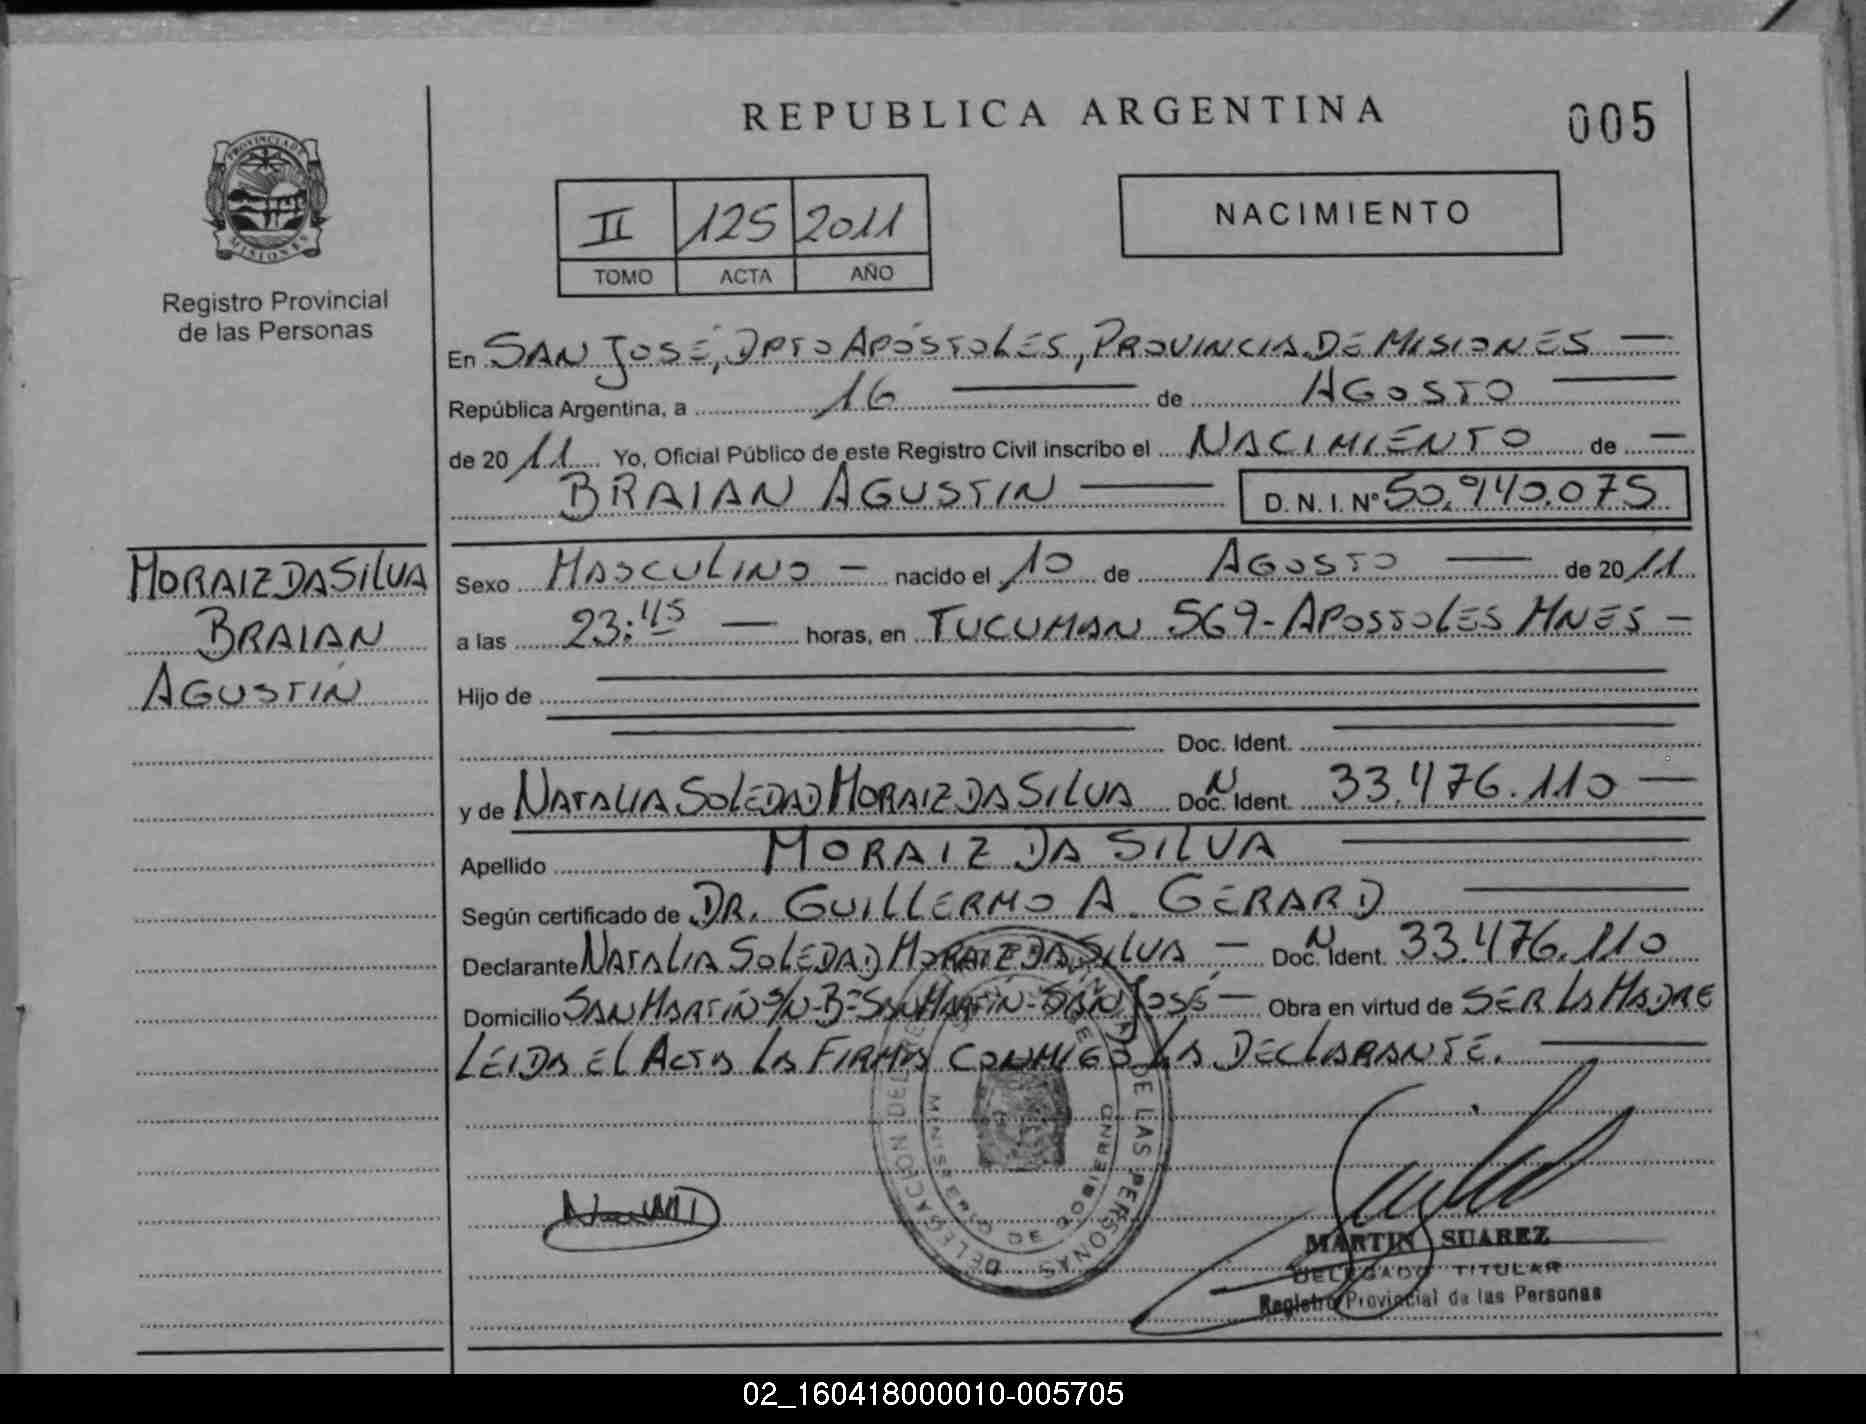 REPUBLICA ARGENTINA
005
PROVINCIA DE
MISIONES
Registro Provincial
de las Personas
II 125 2011
TOMO ACTA AÑO
NACIMIENTO
En SAN JOSÉ, DPTO APÓSTOLES, PROVINCIA DE MISIONES —
República Argentina, a 16 — de AGOSTO —
de 20 11 Yo, Oficial Público de este Registro Civil inscribo el NACIMIENTO de —
BRAIAN AGUSTIN — D. N. I. Nº 50.940.075
MORAIZ DA SILVA
BRAIAN
AGUSTÍN
Sexo MASCULINO — nacido el 10 de AGOSTO — de 20 11
a las 23:45 — horas, en TUCUMAN 569 - APOSTOLES MNES —
Hijo de —
— Doc. Ident. —
y de NATALIA SOLEDAD MORAIZ DA SILVA Doc. N Ident. 33.476.110 —
Apellido MORAIZ DA SILVA —
Según certificado de DR. GUILLERMO A. GERARD —
Declarante NATALIA SOLEDAD MORAIZ DA SILVA — Doc. N Ident. 33.476.110
Domicilio SAN MARTÍN S/N - Bº SAN MARTÍN - SAN JOSÉ — Obra en virtud de SER LA MADRE
LEIDA EL ACTA LA FIRMA CONMIGO LA DECLARANTE. —
DELEGACION DEL DE LAS PERSONAS
MINISTERIO DE GOBIERNO
MARTIN SUAREZ
DELEGADO TITULAR
Registro Provincial de las Personas
02_160418000010-005705